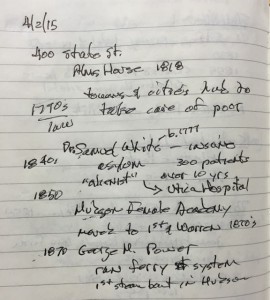 4/2/15
400 State St.
Alms House 1818
towns & cities had to
1770s take care of poor
laws
b. 1777
Dr Samuel White - insane
1840s asylum 300 patients
"alienist" over 10 yrs
→ Utica Hospital
1850 Hudson Female Academy
moved to 1st & Warren 1870's
1870 George H. Power
ran ferry system
1st steam boat in Hudson